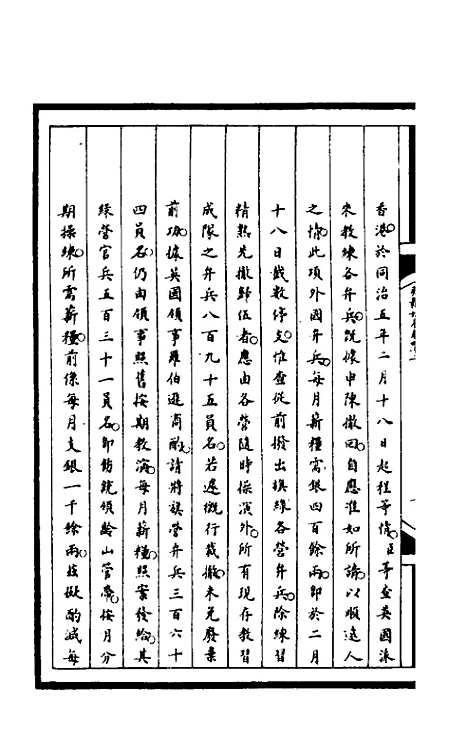 香港於同治五年二月十八日起程等情臣等查英國派
來教練各弁兵既據申陳撤回自應准如所請以順遠人
之情此項外國弁兵每月薪糧需銀四百餘兩即於二月
十八日截數停支惟查從前撥出旗綠各營弁兵除練習
精熟先撤歸伍者應由各營隨時操演外所有現存教習
成隊之弁兵八百九十五員名若遽概行裁撤未免廢棄
前功據英國領事羅伯遜商酌請將旗營弁兵三百六十
四員名仍由領事照舊按期教演每月薪糧照案發給其
綠營官兵五百三十一員名即飭統領齡山管帶按月分
期操練所需薪糧前係每月支銀一千餘兩茲擬酌減每